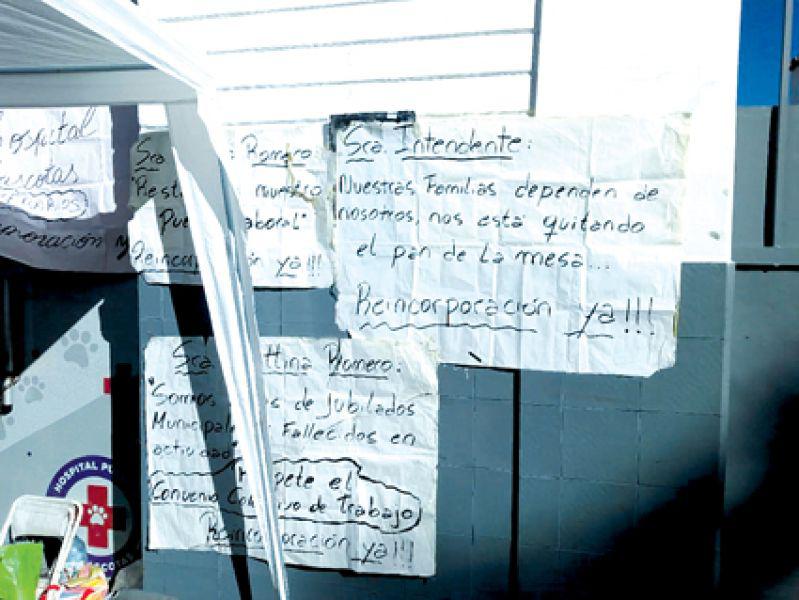 Hospital
Mascotas
moración y
Sra Romero
"Resti nuestro
Pue laboral"
Reincorporación ya!!!
Sra. Intendente:
Nuestras Familias dependen de
nosotros, nos está quitando
el pan de la mesa...
Reincorporación ya!!!
Sra. ttina Romero:
"Somos de Jubilados
Municipal Fallecidos en
actividad"
Respete el
Convenio Colectivo de Trabajo
Reincorporación ya!!!
HOSPITAL PU
MASCOTAS